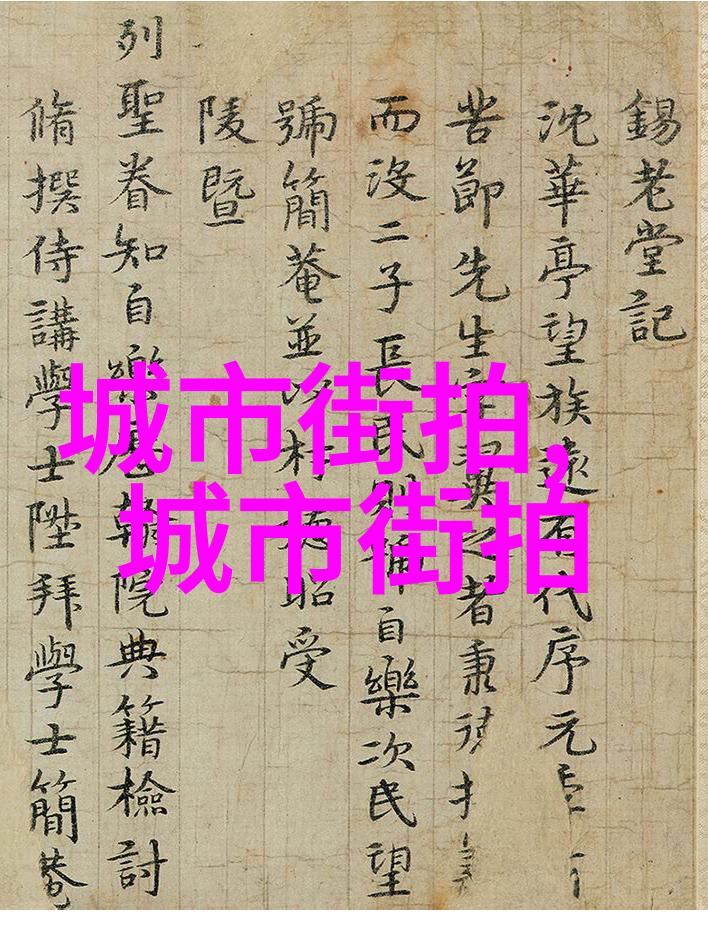 錫老堂記
沈華亭望族遠代序元
苦節先生之者秉
而沒二子長民則自樂次民望
號簡菴並昭受
陵暨
列聖眷知自樂翰院典籍檢討
脩撰侍講學士陞拜學士簡菴
城市街拍,
城市街拍